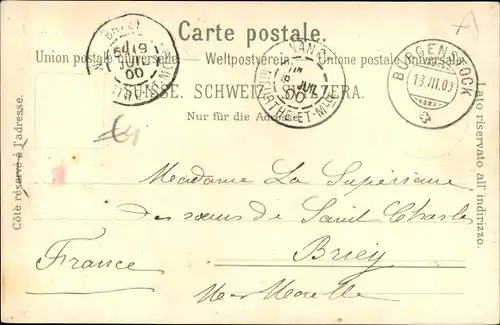 Carte postale.
Union postale universelle. — Weltpostverein. — Unione postale universale.
SUISSE. SCHWEIZ. SVIZZERA.
Nur für die Adresse.
Côté réservé à l'adresse.
Lato riservato all' indirizzo.
BRIEY
19
JUIL
00
NANCY
JUIL
00
MEURTHE-ET-MLLE
BÜRGENSTOCK
Madame La Supérieure
des sœurs de Saint Charles
Briey
France